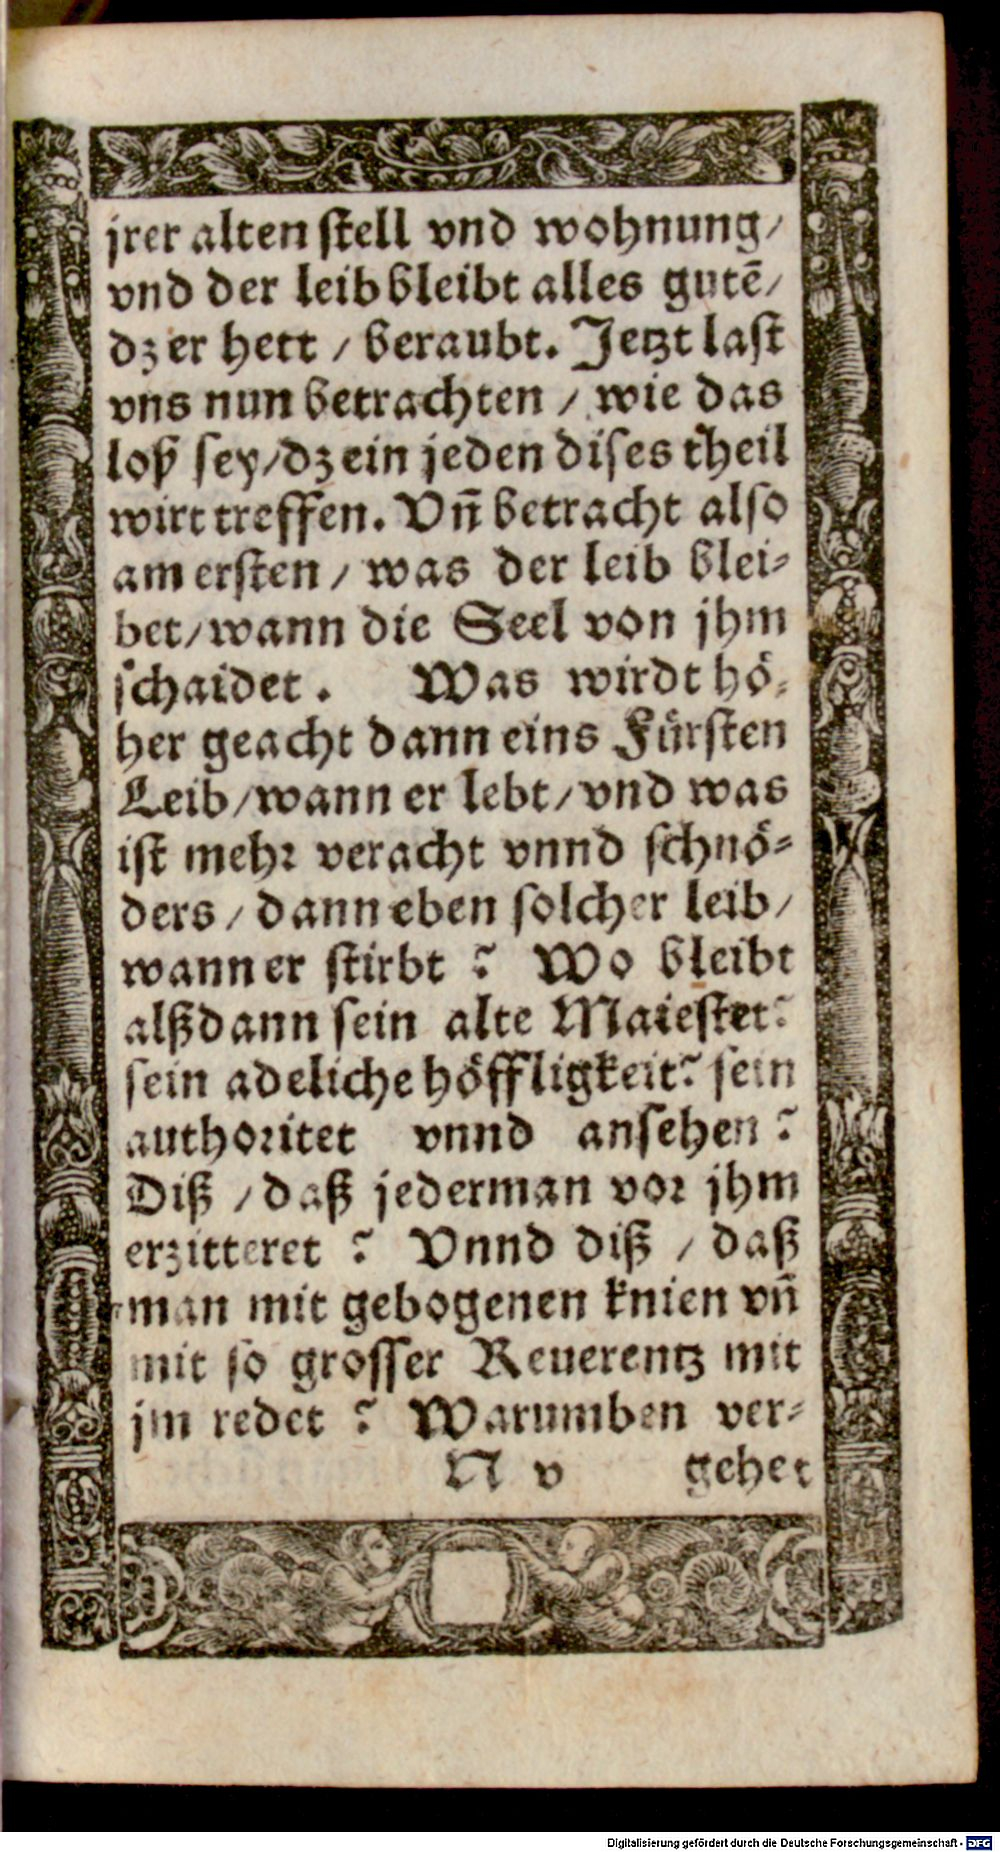 jrer alten stell vnd wohnung/
vnd der leib bleibt alles gutē/
dz er hett / beraubt. Jetzt last
vns nun betrachten / wie das
loß sey/dz ein jeden dises theil
wirt treffen. Vñ betracht also
am ersten / was der leib blei-
bet/wann die Seel von jhm
schaidet. Was wirdt hö-
her geacht dann eins Fürsten
Leib/wann er lebt/vnd was
ist mehr veracht vnnd schnö-
ders / dann eben solcher leib/
wann er stirbt ? Wo bleibt
alßdann sein alte Maiestet?
sein adeliche höffligkeit? sein
authoritet vnnd ansehen ?
Diß / daß jederman vor jhm
erzitteret ? Vnnd diß / daß
man mit gebogenen knien vñ
mit so grosser Reuerentz mit
jm redet ? Warumben ver-
N v gehet
Digitalisierung gefördert durch die Deutsche Forschungsgemeinschaft - DFG